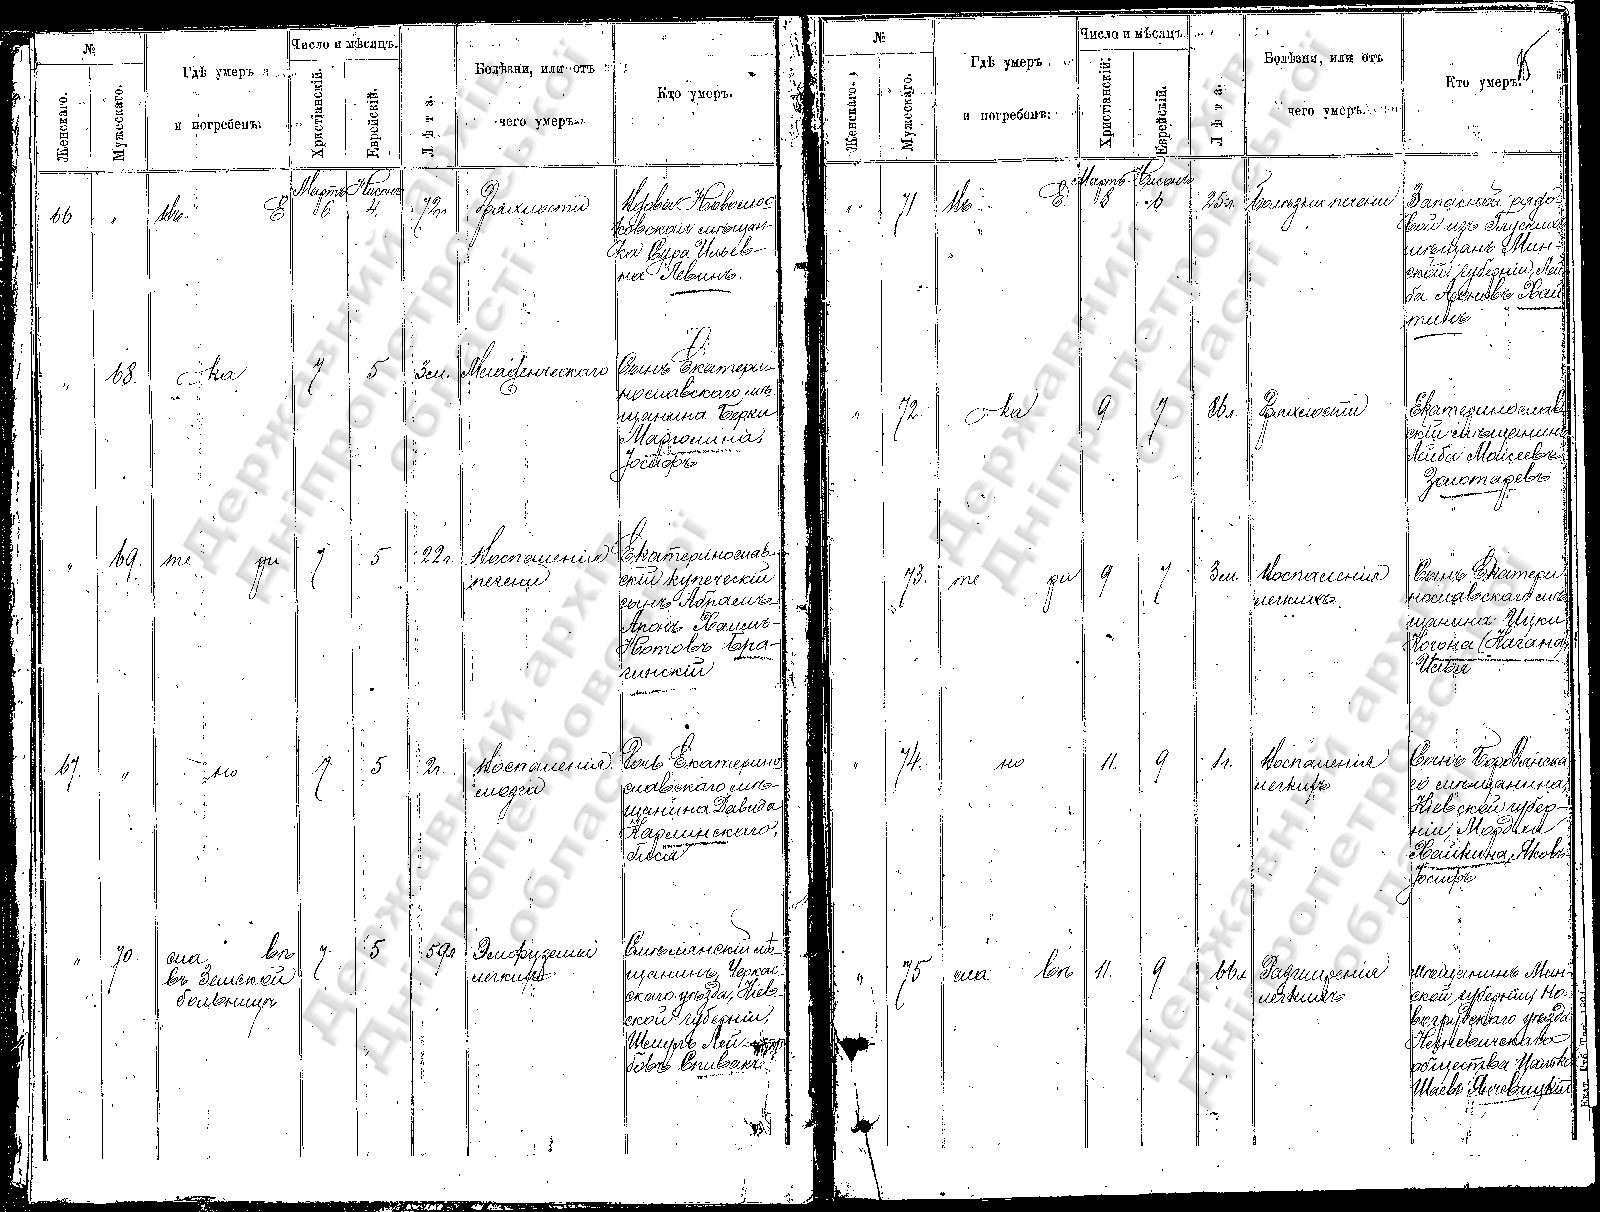 №
Женскаго.
Мужескаго.
Гдѣ умеръ
и погребенъ.
Число и мѣсяцъ.
Христіанскій.
Еврейскій.
Лѣта.
Болѣзни, или отъ
чего умеръ.
Кто умеръ.
66 " Въ Е
Мартъ 6
Нисонъ 4
72 г.
Дряхлости
Вдова Новомос-
ковская мѣщан-
ка Сура Ильев-
на Левинъ.
" 68. ка 7 5 3 м. Младенческаго
Сынъ Екатери-
нославскаго мѣ-
щанина Берки
Марголина,
Іосифъ
" 69. те ри 7 5 22 г. Воспаленія
печени
Екатеринослав-
скій купеческій
сынъ Абрамъ-
Аронъ Хаимъ-
Нотовъ Бра-
гинскій
67. " но 7 5 2 г. Воспаленія
мозга
Дочь Екатерино
славскаго мѣ-
щанина Давида
Карлинскаго,
Бася
" 70. сла вѣ 7. 5 59 л
въ Земской
больницѣ
Эмфуземы
легкихъ
Смѣлянскій мѣ-
щанинъ, Черкас-
скаго уѣзда, Кіев-
ской губерніи,
Шмуль Лей-
бовъ Спивакъ.
№
Женскаго.
Мужескаго.
Гдѣ умеръ
и погребенъ.
Число и мѣсяцъ.
Христіанскій.
Еврейскій.
Лѣта.
Болѣзни, или отъ
чего умеръ.
Кто умеръ.
" 71 Въ Е
Мартъ 8
Нисонъ 6
25 г. Болѣзни печени
Запасный рядо-
вой изъ Глускихъ
мѣщанъ Мин-
ской губерніи, Лей
ба Ароновъ Хай
тинъ
" 72. ка 9 7 86 л. Дряхлости
Екатеринослав
скій мѣщанинъ
Лейба Моисеевъ
Золотаревъ
73. те ри 9 7 3 м. Воспаленія
легкихъ.
Сынъ Екатери
нославскаго мѣ
щанина Ицки
Когона (Кагана)
" 74. но 11. 9 1 г. Воспаленія
легкихъ
Сынъ Бородянска
го мѣщанина,
Кіевской губер-
ніи, Мордка
Хайкина, Яковъ-
Іосифъ
" 75 сла вѣ 11. 9 66 л Расширенія
легкихъ
Мѣщанинъ Мин-
ской губерніи Но-
вогрудскаго уѣзда
общества
Шаевъ Янчевицкій
Державний архів
Дніпропетровської
області